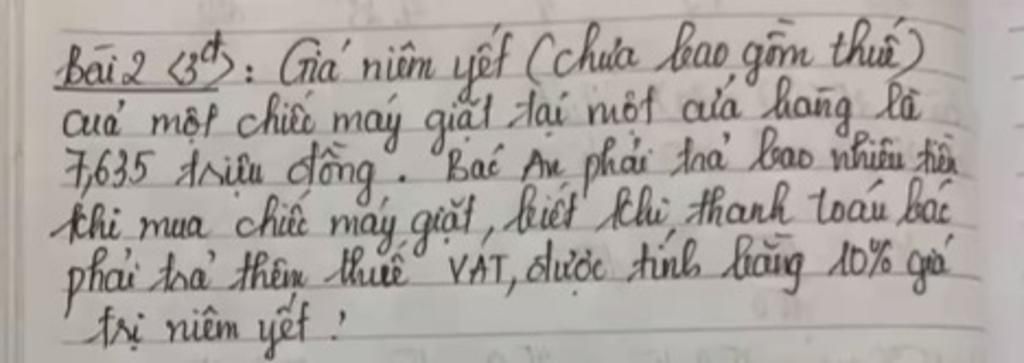 Bài 2 <3đ>: Giá niêm yết (chưa bao gồm thuế)
của một chiếc máy giặt tại một cửa hàng là
7,635 triệu đồng. Bác An phải trả bao nhiêu tiền
khi mua chiếc máy giặt, biết khi thanh toán bác
phải trả thêm thuế VAT, được tính bằng 10% giá
trị niêm yết?